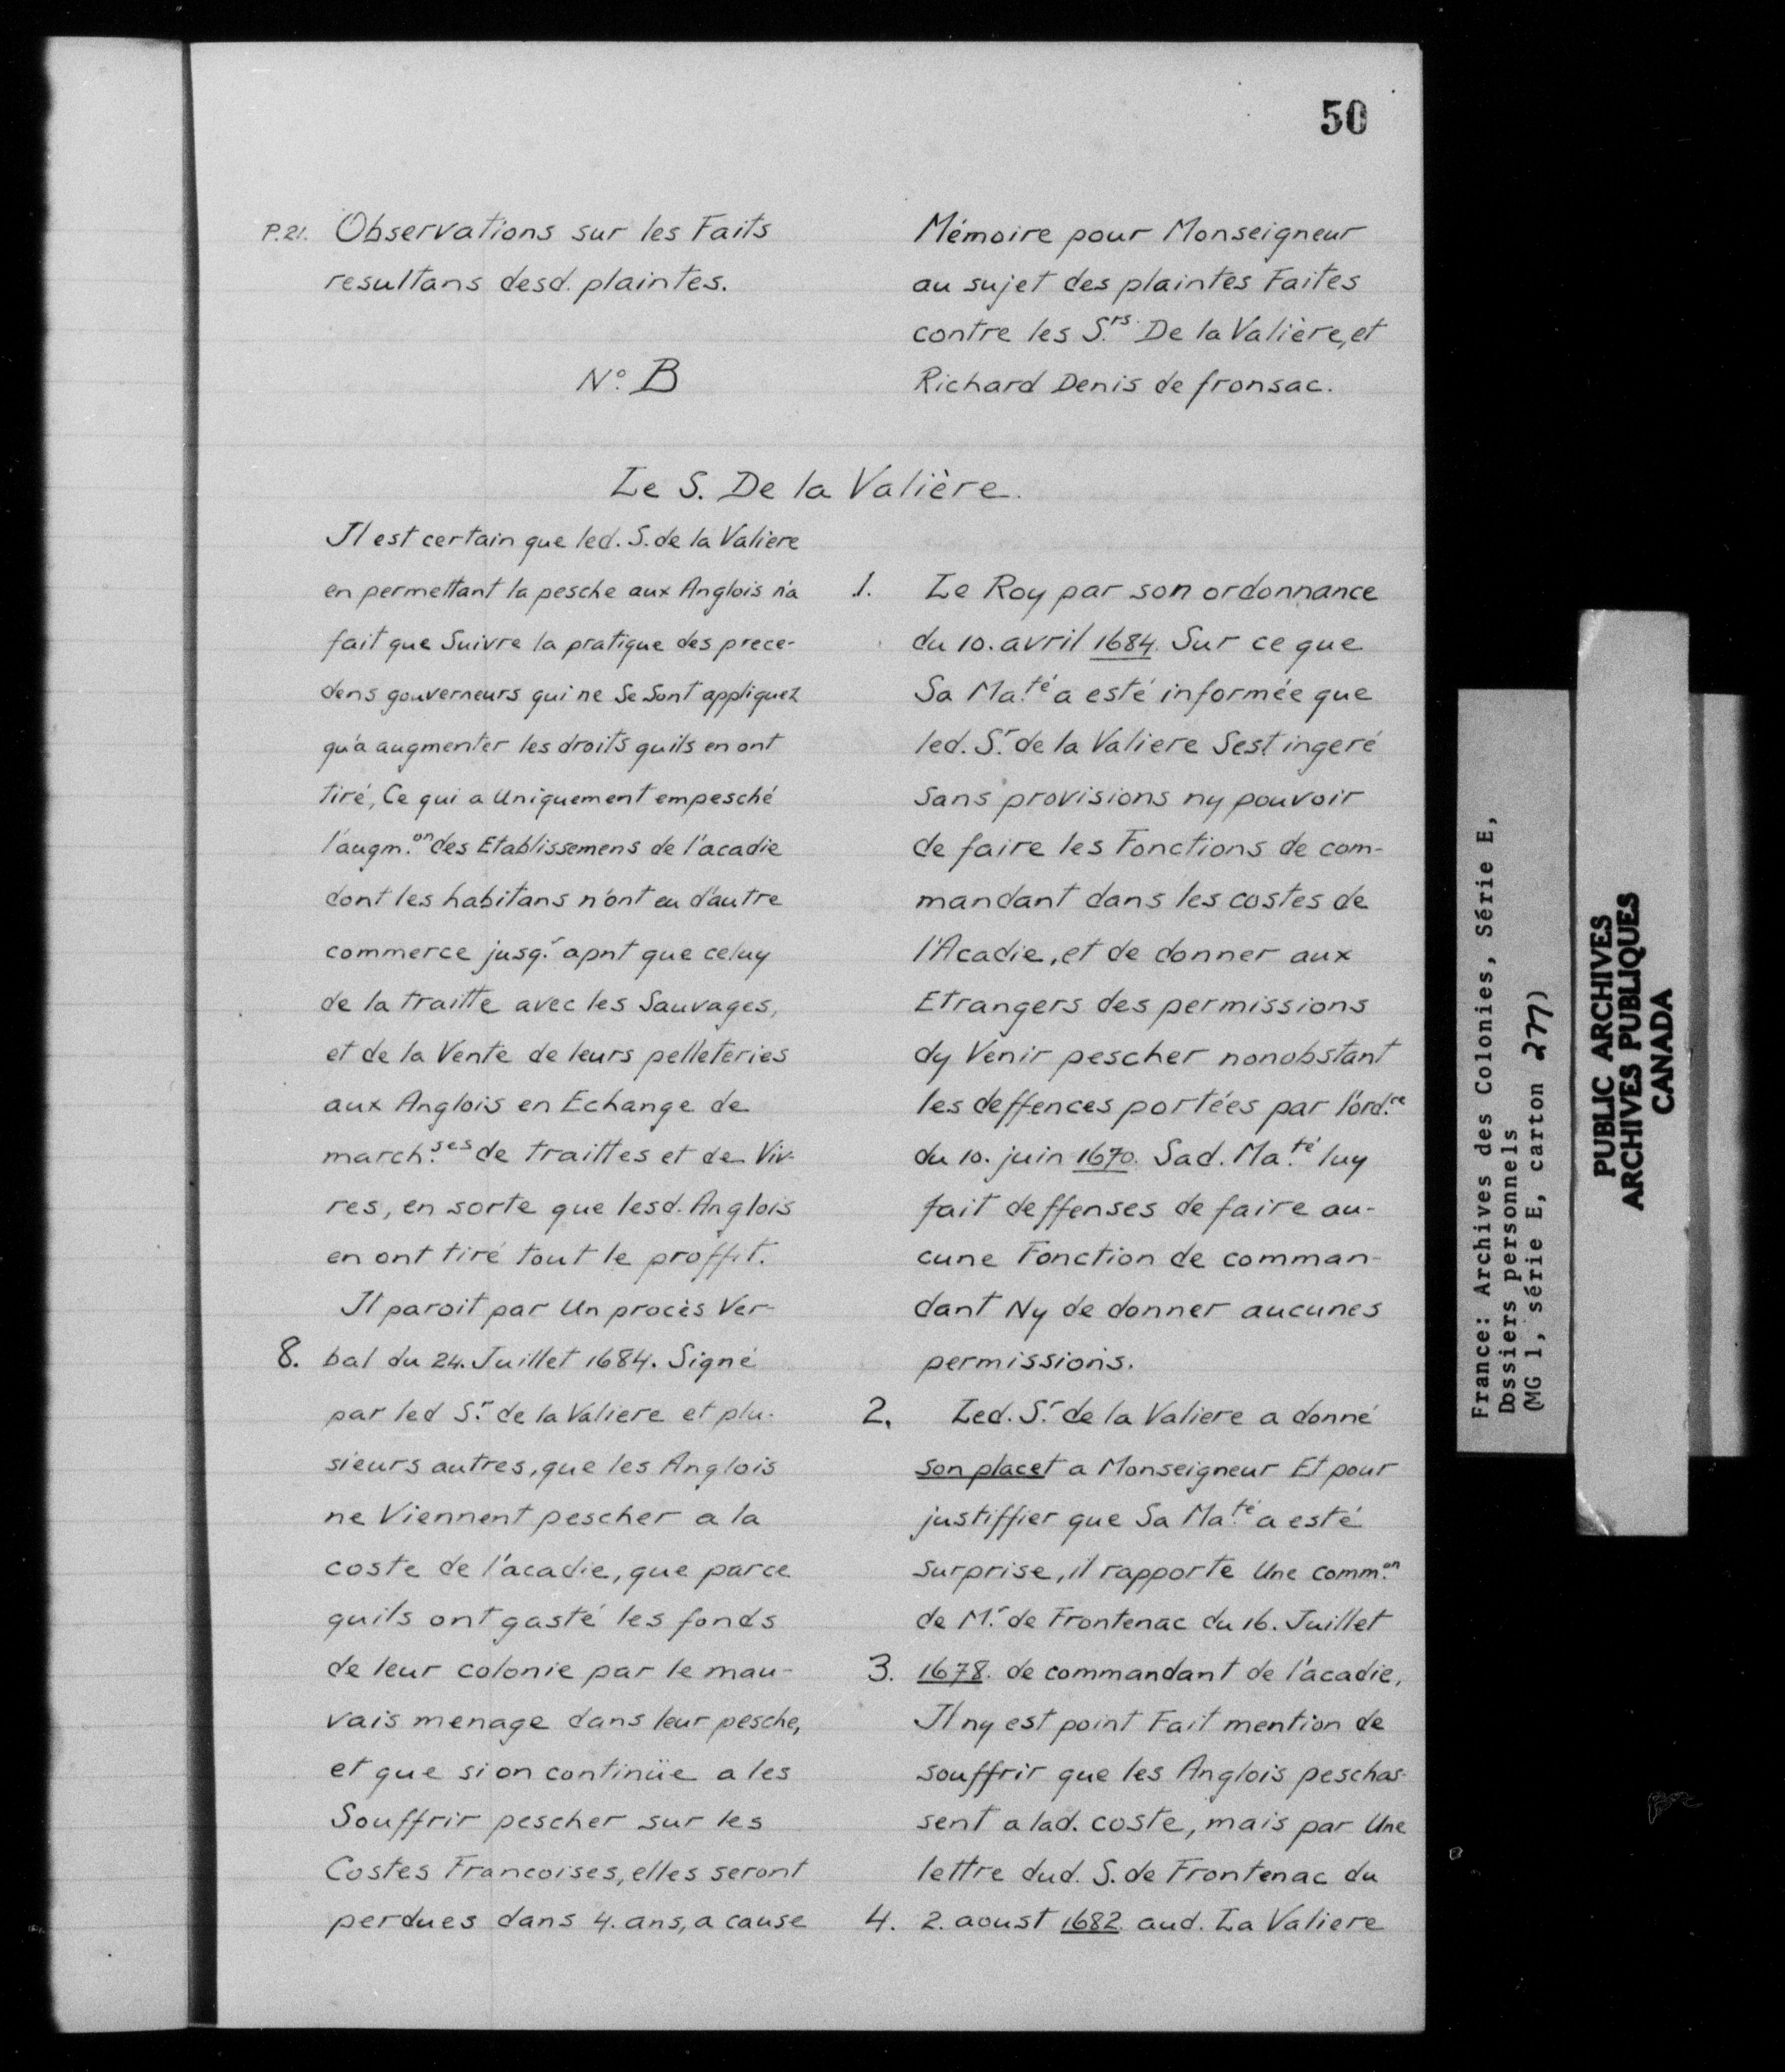 50
P.21. Observations sur les Faits
resultans desd. plaintes.
N° B
Mémoire pour Monseigneur
au sujet des plaintes Faites
contre les S.rs De la Valière, et
Richard Denis de fronsac.
Le S. De la Valière.
Il est certain que led. S. de la Valiere
en permettant la pesche aux Anglois n'a
fait que Suivre la pratique des prece-
dens gouverneurs qui ne Se Sont appliquez
qu'a augmenter les droits quils en ont
tiré, Ce qui a Uniquement empesché
l'augm.on des Etablissemens de l'acadie
dont les habitans n'ont eu d'autre
commerce jusq.r apnt que celuy
de la traitte avec les Sauvages,
et de la Vente de leurs pelleteries
aux Anglois en Echange de
march.ses de traittes et de Viv-
res, en sorte que lesd. Anglois
en ont tiré tout le proffit.
Il paroit par Un procès Ver-
8. bal du 24. Juillet 1684. Signé
par led S.r de la Valiere et plu-
sieurs autres, que les Anglois
ne Viennent pescher a la
coste de l'acadie, que parce
quils ont gasté les fonds
de leur colonie par le mau-
vais menage dans leur pesche,
et que si on continüe a les
Souffrir pescher sur les
Costes Francoises, elles seront
perdues dans 4. ans, a cause
1. Le Roy par son ordonnance
du 10. avril 1684. Sur ce que
Sa Ma.té a esté informée que
led. S.r de la Valiere Sest ingeré
Sans provisions ny pouvoir
de faire les Fonctions de com-
mandant dans les costes de
l'Acadie, et de donner aux
Etrangers des permissions
dy Venir pescher nonobstant
les deffences portées par l'ord.ce
du 10. juin 1670. Sad. Ma.té luy
fait deffenses de faire au-
cune Fonction de comman-
dant Ny de donner aucunes
permissions.
2. Led. S.r de la Valiere a donné
son placet a Monseigneur Et pour
justiffier que Sa Ma.té a esté
surprise, il rapporte Une comm.on
de M.r de Frontenac du 16. Juillet
3. 1678. de commandant de l'acadie,
Il ny est point Fait mention de
souffrir que les Anglois peschas-
sent a lad. coste, mais par Une
lettre dud. S. de Frontenac du
4. 2. aoust 1682. aud. La Valiere
France: Archives des Colonies, Série E,
Dossiers personnels
(MG 1, série E, carton 277)
PUBLIC ARCHIVES
ARCHIVES PUBLIQUES
CANADA